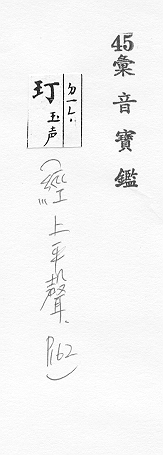 45彙音寶鑑
ㄉㄧㄥ
玎 玉声
(經上平聲、P162)